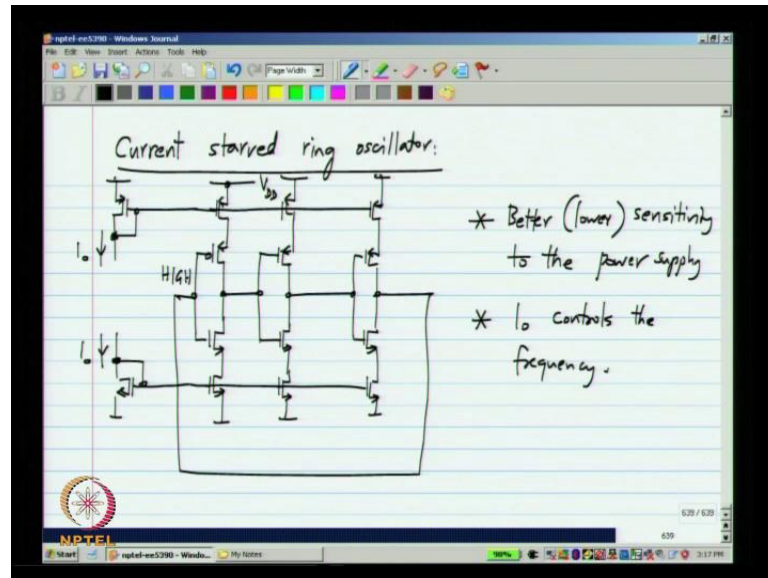 nptel-ee5390 - Windows Journal
File Edit View Insert Actions Tools Help
Page Width
B I
Current starved ring oscillator:
V_DD
I_o
HIGH
I_o
* Better (lower) sensitivity
to the power supply
* I_o controls the
frequency.
639 / 639
639
NPTEL
Start
nptel-ee5390 - Windo...
My Notes
98%
3:17 PM